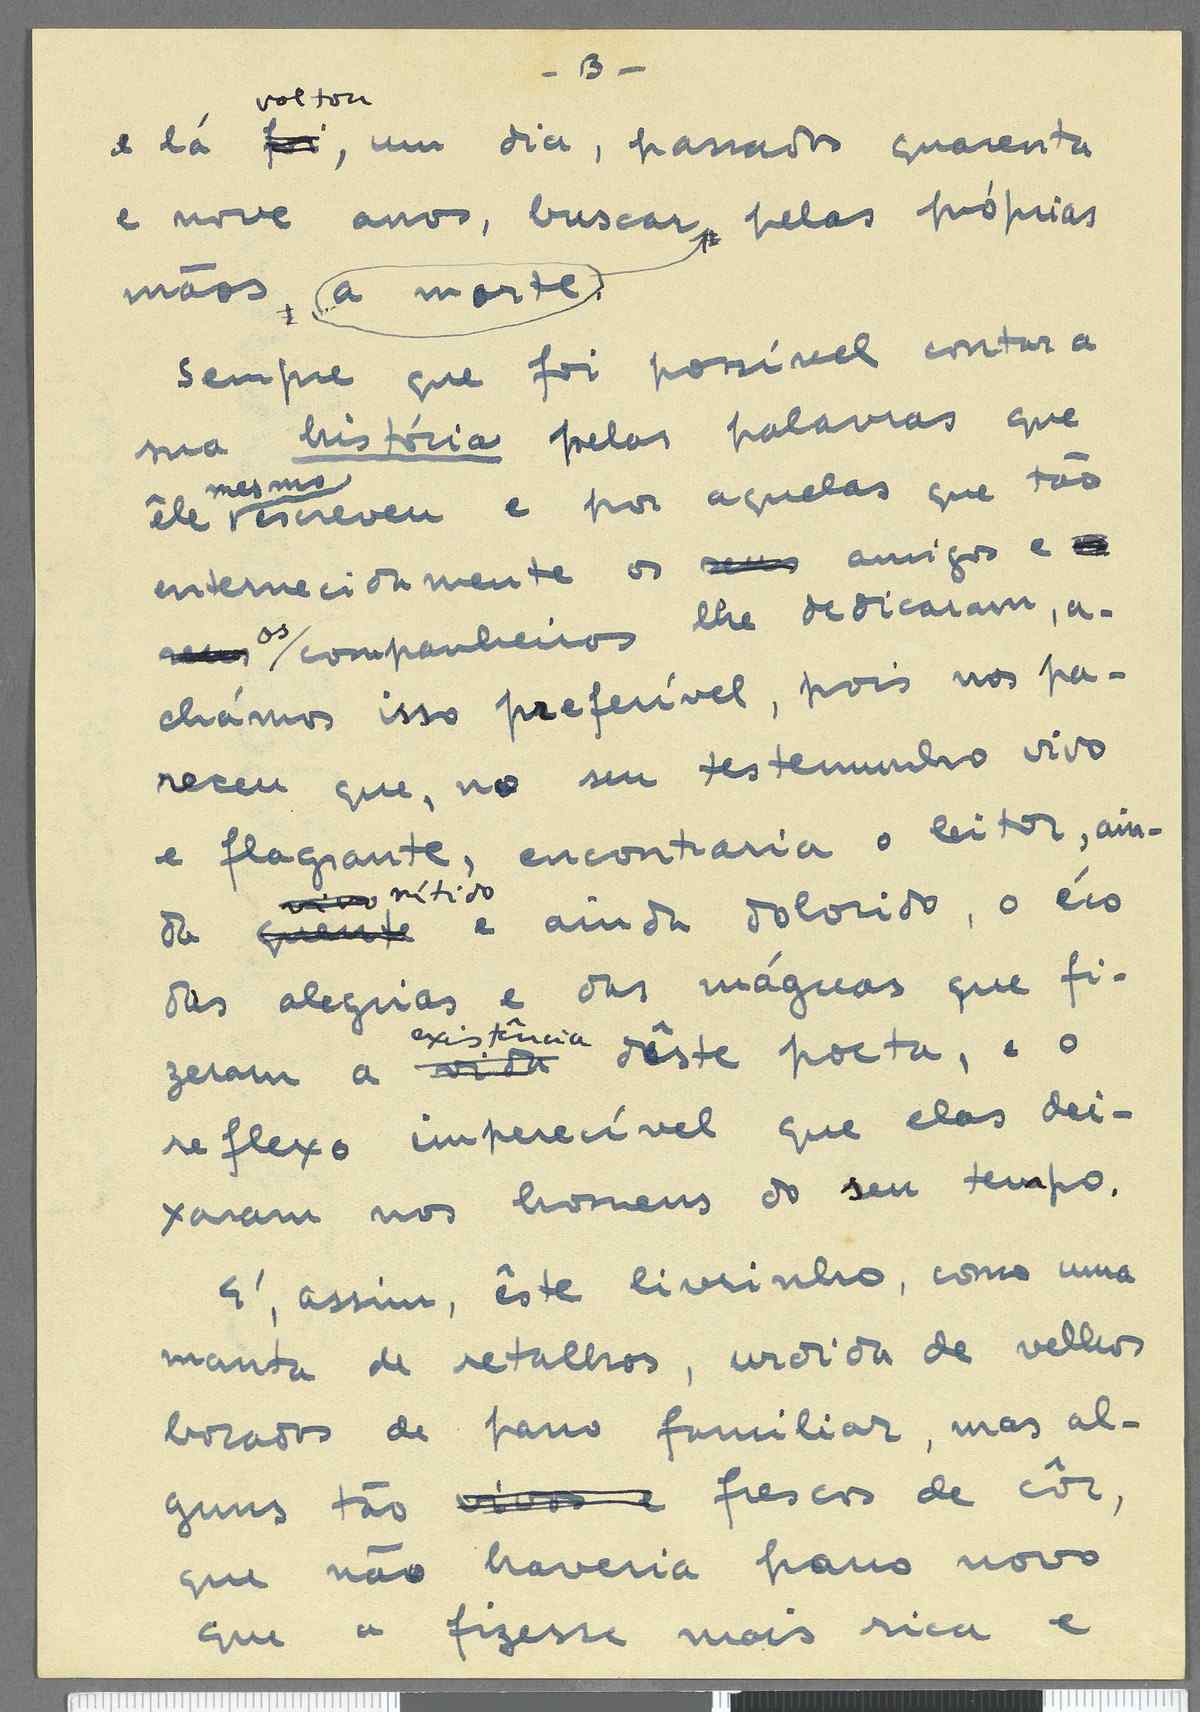 - 3 -
voltou
e lá foi, um dia, passados quarenta
e nove anos, buscar, pelas próprias
mãos, a morte.
Sempre que foi possível contar a
sua história pelas palavras que
mesmo
êle escreveu e por aquelas que tão
enternecidamente os seus amigos e
seus os/companheiros lhe dedicaram, a-
chámos isso preferível, pois nos pa-
receu que, no seu testemunho vivo
e flagrante, encontraria o leitor, ain-
vivo nítido
da quente e ainda dolorido, o éco
das alegrias e das máguas que fi-
existência
zeram a vida dêste poeta, e o
reflexo imperecível que elas dei-
xaram nos homens do seu tempo.
E', assim, êste livrinho, como uma
manta de retalhos, urdida de velhos
bocados de pano familiar, mas al-
guns tão vivos e frescos de côr,
que não haveria pano novo
que a fizesse mais rica e